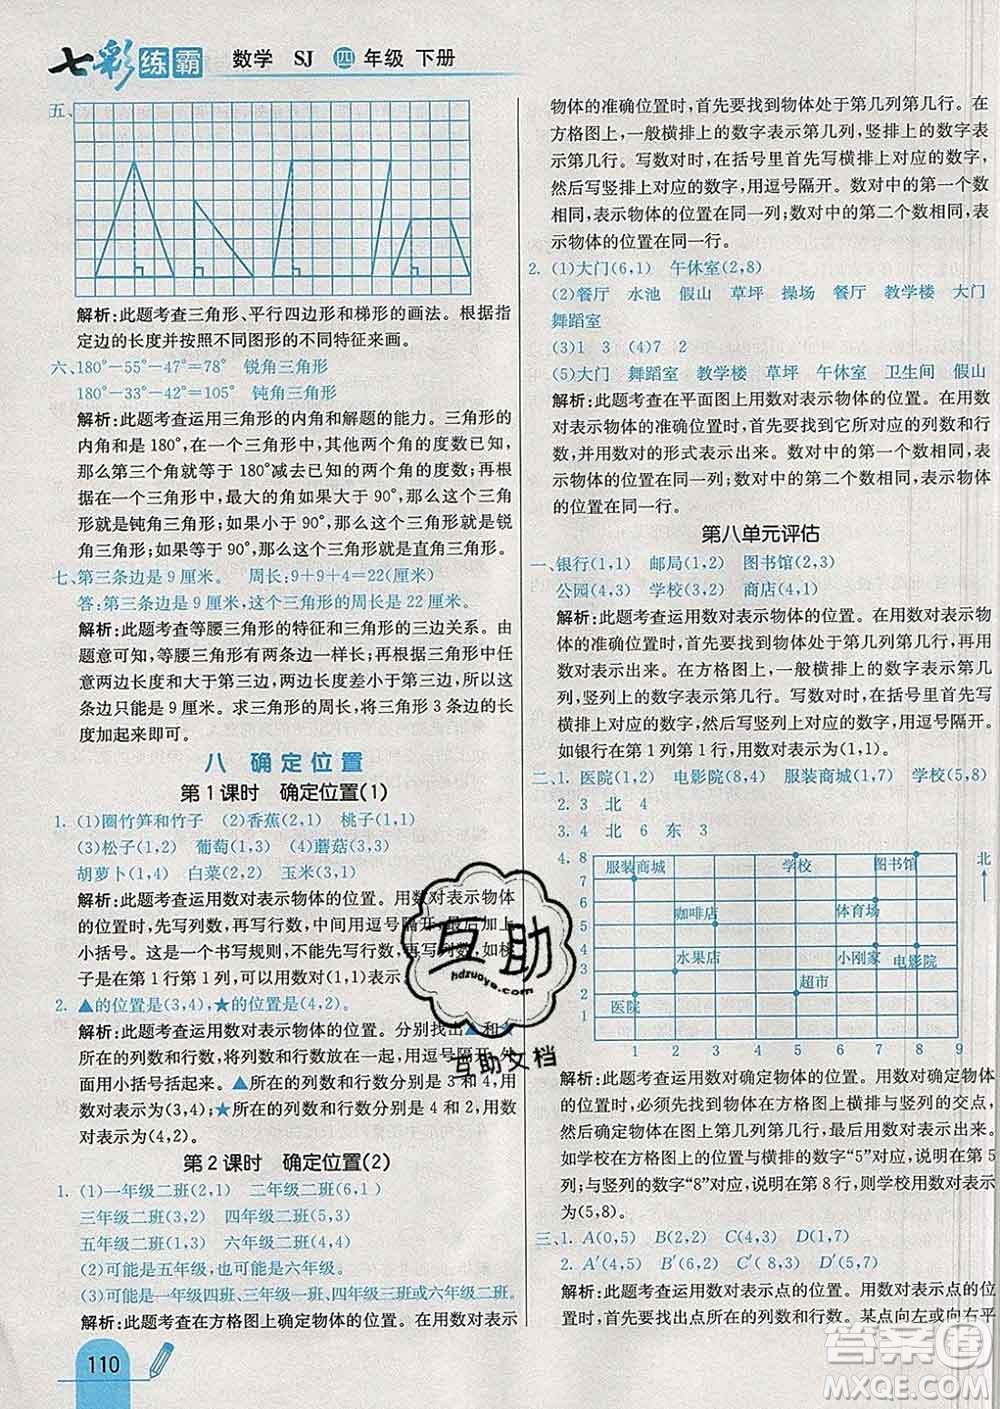 七彩练霸 数学 SJ 四年级 下册
五、
解析:此题考查三角形、平行四边形和梯形的画法。根据指
定边的长度并按照不同图形的不同特征来画。
六、180°－55°－47°＝78° 锐角三角形
180°－33°－42°＝105° 钝角三角形
解析:此题考查运用三角形的内角和解题的能力。三角形的
内角和是180°,在一个三角形中,其他两个角的度数已知,
那么第三个角就等于180°减去已知的两个角的度数;再
根据一个三角形中,最大的角如果大于90°,那么这个三角
形就是钝角三角形;如果等于90°,那么这个三角形就是直
角三角形;如果小于90°,那么这个三角形就是锐角三角形。
七、第三条边是9厘米。 周长:9+9+4=22(厘米)
答:第三条边是9厘米。这个三角形的周长是22厘米。
解析:此题考查等腰三角形的特征和三角形的三边关系。由
题意可知,等腰三角形有两条边一样长;再根据三角形中任
意两边长度和大于第三边,两边长度差小于第三边,可知这
条边的长度是9厘米。求三角形的周长,将三角形3条边的长
度加起来即可。
八 确定位置
第1课时 确定位置(1)
1. (1)圈竹笋和竹子 (2)香蕉(2,1) 桃子(1,1)
(3)松子(1,2) 葡萄(1,3) (4)蘑菇(3,3)
胡萝卜(1,3) 白菜(2,2) 玉米(3,1)
解析:此题考查运用数对表示物体的位置。用数对表示物体
的位置时,先写列数,再写行数,中间用逗号隔开,最后加上
小括号。这是一个书写规则,不能先写行数,再写列数,如桃
子是在第1行第1列,可以用数对(1,1)表示。
2. ▲的位置是(3,4),★的位置是(4,2)。
解析:此题考查运用数对表示物体的位置。分别找出▲和★
所在的列数和行数,将行数和列数放在一起,用逗号隔开,外
面用小括号括起来。▲所在的列数和行数分别是3和4,用
数对表示为(3,4);★所在的列数和行数分别是4和2,用数
对表示为(4,2)。
第2课时 确定位置(2)
1. (1)一年级二班(2,1) 二年级二班(6,1)
三年级二班(3,2) 四年级二班(5,3)
五年级二班(1,3) 六年级二班(4,4)
(2)可能是五年级一班或五年级二班。
(3)可能是一年级四班、三年级一班、四年级三班或六年级二班。
解析:此题考查在方格图上确定物体的位置。在用数对表示
110
物体的准确位置时,首先要找到物体处于第几列第几行。在
方格图上,一般横排上的数字表示第几列,竖排上的数字表
示第几行。写数对时,在括号里首先写横排上对应的数字,
然后写竖排上对应的数字,用逗号隔开。数对中的第一个数
相同,表示物体的位置在同一列;数对中的第二个数相同,表
示物体的位置在同一行。
2. (1)大门(6,1) 午休室(2,8)
(2)餐厅 水池 假山 草坪 操场 餐厅 教学楼 大门
舞蹈室
(3)1 3 (4)7 2
(5)大门 舞蹈室 教学楼 草坪 午休室 卫生间 假山
解析:此题考查在平面图上用数对表示物体的位置。在用数
对表示物体的准确位置时,首先要找到它所对应的列数和行
数,并用数对的形式表示出来。数对中的第一个数相同,表
示物体的位置在同一列;数对中的第二个数相同,表示物体
的位置在同一行。
第八单元评估
一、银行(1,1) 邮局(1,2) 图书馆(2,3)
公园(4,3) 学校(3,2) 商店(4,1)
解析:此题考查运用数对表示物体的位置。在用数对表示物
体的准确位置时,首先要找到物体处于第几列第几行,再用
数对表示出来。在方格图上,一般横排上的数字表示第几
列,竖列上的数字表示第几行。写数对时,在括号里首先写
横排上对应的数字,然后写竖列上对应的数字,用逗号隔开。
如银行在第1列第1行,用数对表示为(1,1)。
二、1. 医院(1,2) 电影院(8,4) 服装商城(1,7) 学校(5,8)
2. 3 北 4
3. 4 北 6 东 3
4. 8
7
6
5
4
3
2
1
服装商城 学校 图书馆 北
咖啡店 体育场
水果店 小刚家 电影院
超市
医院
1 2 3 4 5 6 7 8 9
解析:此题考查运用数对确定物体的位置。用数对确定物体
的位置时,必须先找到物体在方格图上横排与竖列的交点,
然后确定物体在图上第几列第几行,最后用数对表示出来。
如学校在方格图上与横排数字“5”对应,说明在第5列,
与竖列数字“8”对应,说明在第8行,则学校用数对表示
为(5,8)。
三、1. A(0,5) B(2,2) C(6,2) D(1,7)
2. A′(4,5) B′(6,2) C′(10,2) D′(5,7)
解析:此题考查运用数对表示点的位置。用数对表示点的位
置时,首先要找出点所在的列数和行数。某点向左或向右平
互助
hdzuoye.com
互助文档
答案圈
MXQE.COM